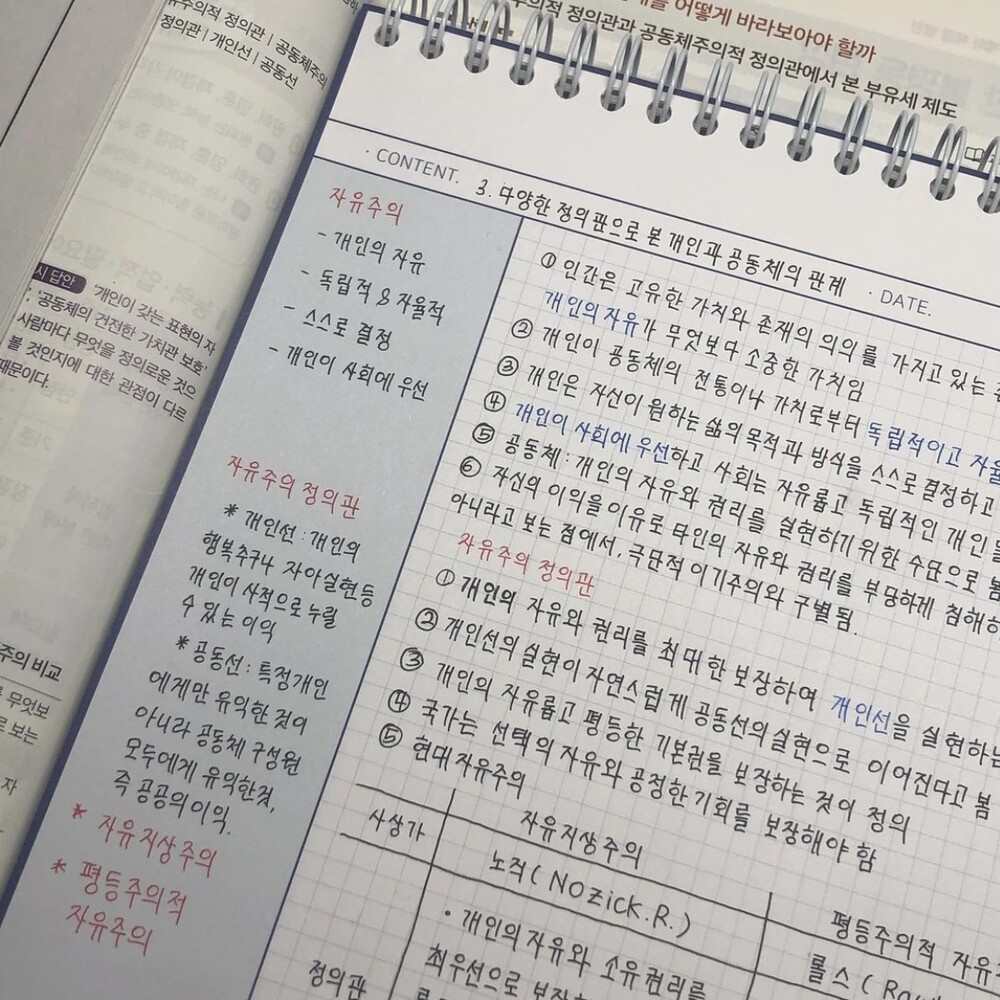 유주의적 정의관 | 공동체주의
정의관 | 개인선 | 공동선
어떻게 바라보아야 할까
주의적 정의관과 공동체주의적 정의관에서 본 부유세 제도
시 답안 개인이 갖는 표현의 자
'공동체의 건전한 가치관 보호'
사람마다 무엇을 정의로운 것으
볼 것인지에 대한 관점이 다르
때문이다.
주의 비교
무엇보
로 보는
자
· CONTENT. 3. 다양한 정의관으로 본 개인과 공동체의 관계 · DATE.
자유주의
- 개인의 자유
- 독립적 & 자율적
- 스스로 결정
- 개인이 사회에 우선
자유주의 정의관
* 개인선 : 개인의
행복추구나 자아실현등
개인이 사적으로 누릴
수 있는 이익
* 공동선 : 특정개인
에게만 유익한 것이
아니라 공동체 구성원
모두에게 유익한것,
즉 공공의 이익.
* 자유지상주의
* 평등주의적
자유주의
① 인간은 고유한 가치와 존재의 의의를 가지고 있는
개인의 자유가 무엇보다 소중한 가치임
② 개인이 공동체의 전통이나 가치로부터 독립적이고 자율
③ 개인은 자신이 원하는 삶의 목적과 방식을 스스로 결정하고
④ 개인이 사회에 우선하고 사회는 자유롭고 독립적인 개인들
⑤ 공동체 : 개인의 자유와 권리를 실현하기 위한 수단으로 봄
⑥ 자신의 이익을 이유로 타인의 자유와 권리를 부당하게 침해하
아니라고 보는 점에서, 극단적 이기주의와 구별됨.
자유주의 정의관
① 개인의 자유와 권리를 최대한 보장하여 개인선을 실현하는
② 개인선의 실현이 자연스럽게 공동선의 실현으로 이어진다고 봄
③ 개인의 자유롭고 평등한 기본권을 보장하는 것이 정의
④ 국가는 선택의 자유와 공정한 기회를 보장해야 함
⑤ 현대 자유주의
사상가
자유지상주의
노직 (NOzick.R.)
평등주의적 자유
롤스 (
정의관
· 개인의 자유와 소유권리를
최우선으로 보장